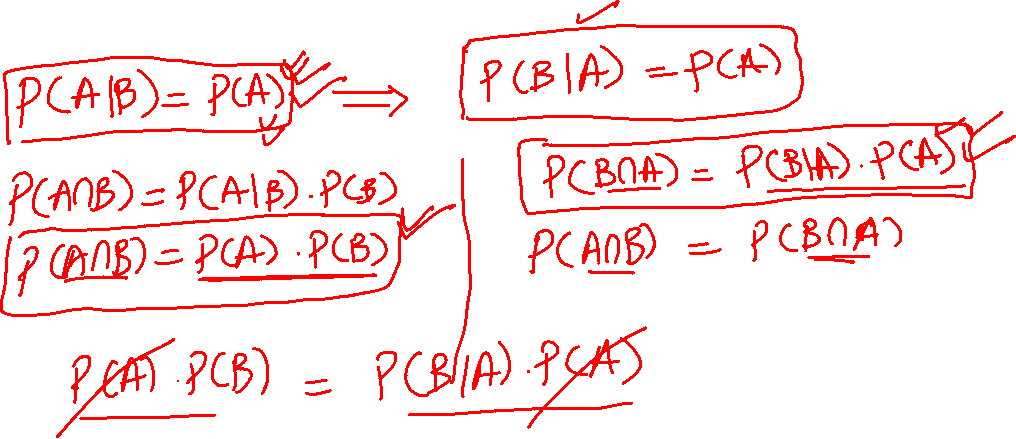 P(A|B) = P(A) ⟹ P(B|A) = P(A)
P(A∩B) = P(A|B) . P(B)
P(B∩A) = P(B|A) . P(A)
P(A∩B) = P(A) . P(B)
P(A∩B) = P(B∩A)
P(A) . P(B) = P(B|A) . P(A)